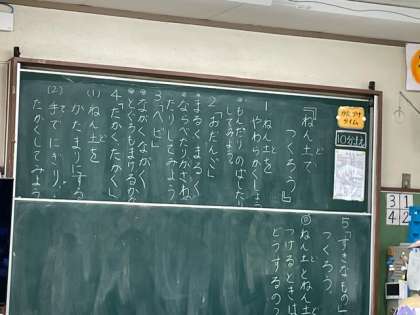 「ねん土で
つくろう」
1 ねん土を
やわらかくしよう
・もんだりのばしたり
してみよう
2「おだんご」
・まるくまるく
・ならべたりかさね
たりしてみよう
3「ヘビ」
・ながくながく
・とぐろもまけるかな
4「たかくたかく」
(1) ねん土を
かたまりにする
(2) 手でにぎり、
たかくしてみよう
5「すきなもの」
つくろう。
◎ねん土とねん土
つけるときは
どうするの?
タイム
10分まえ
3 1
4 2